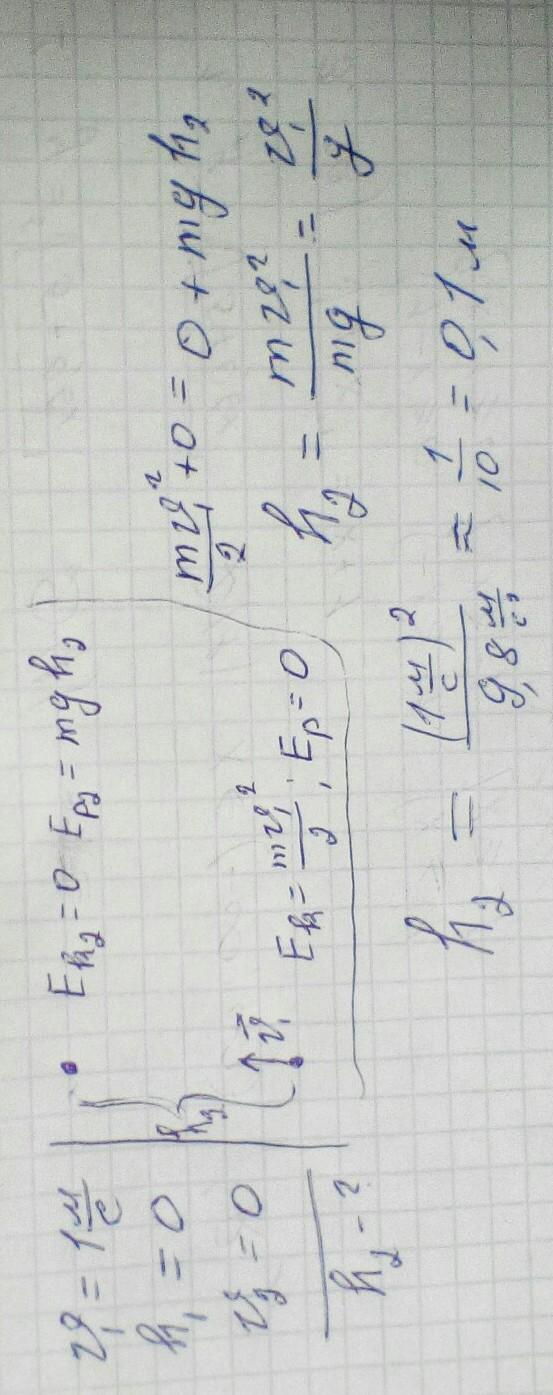 v₁ = 1 м/с
h₁ = 0
v₂ = 0
h₂ - ?
h₂
Eк₂ = 0 Eр₂ = mgh₂
v⃗₁ Eк = mv₁²/2 ; Eр = 0
mv₁²/2 + 0 = 0 + mgh₂
h₂ = mv₁²/mg = v₁²/g
h₂ = (1 м/с)²/9,8 м/с² ≈ 1/10 = 0,1 м